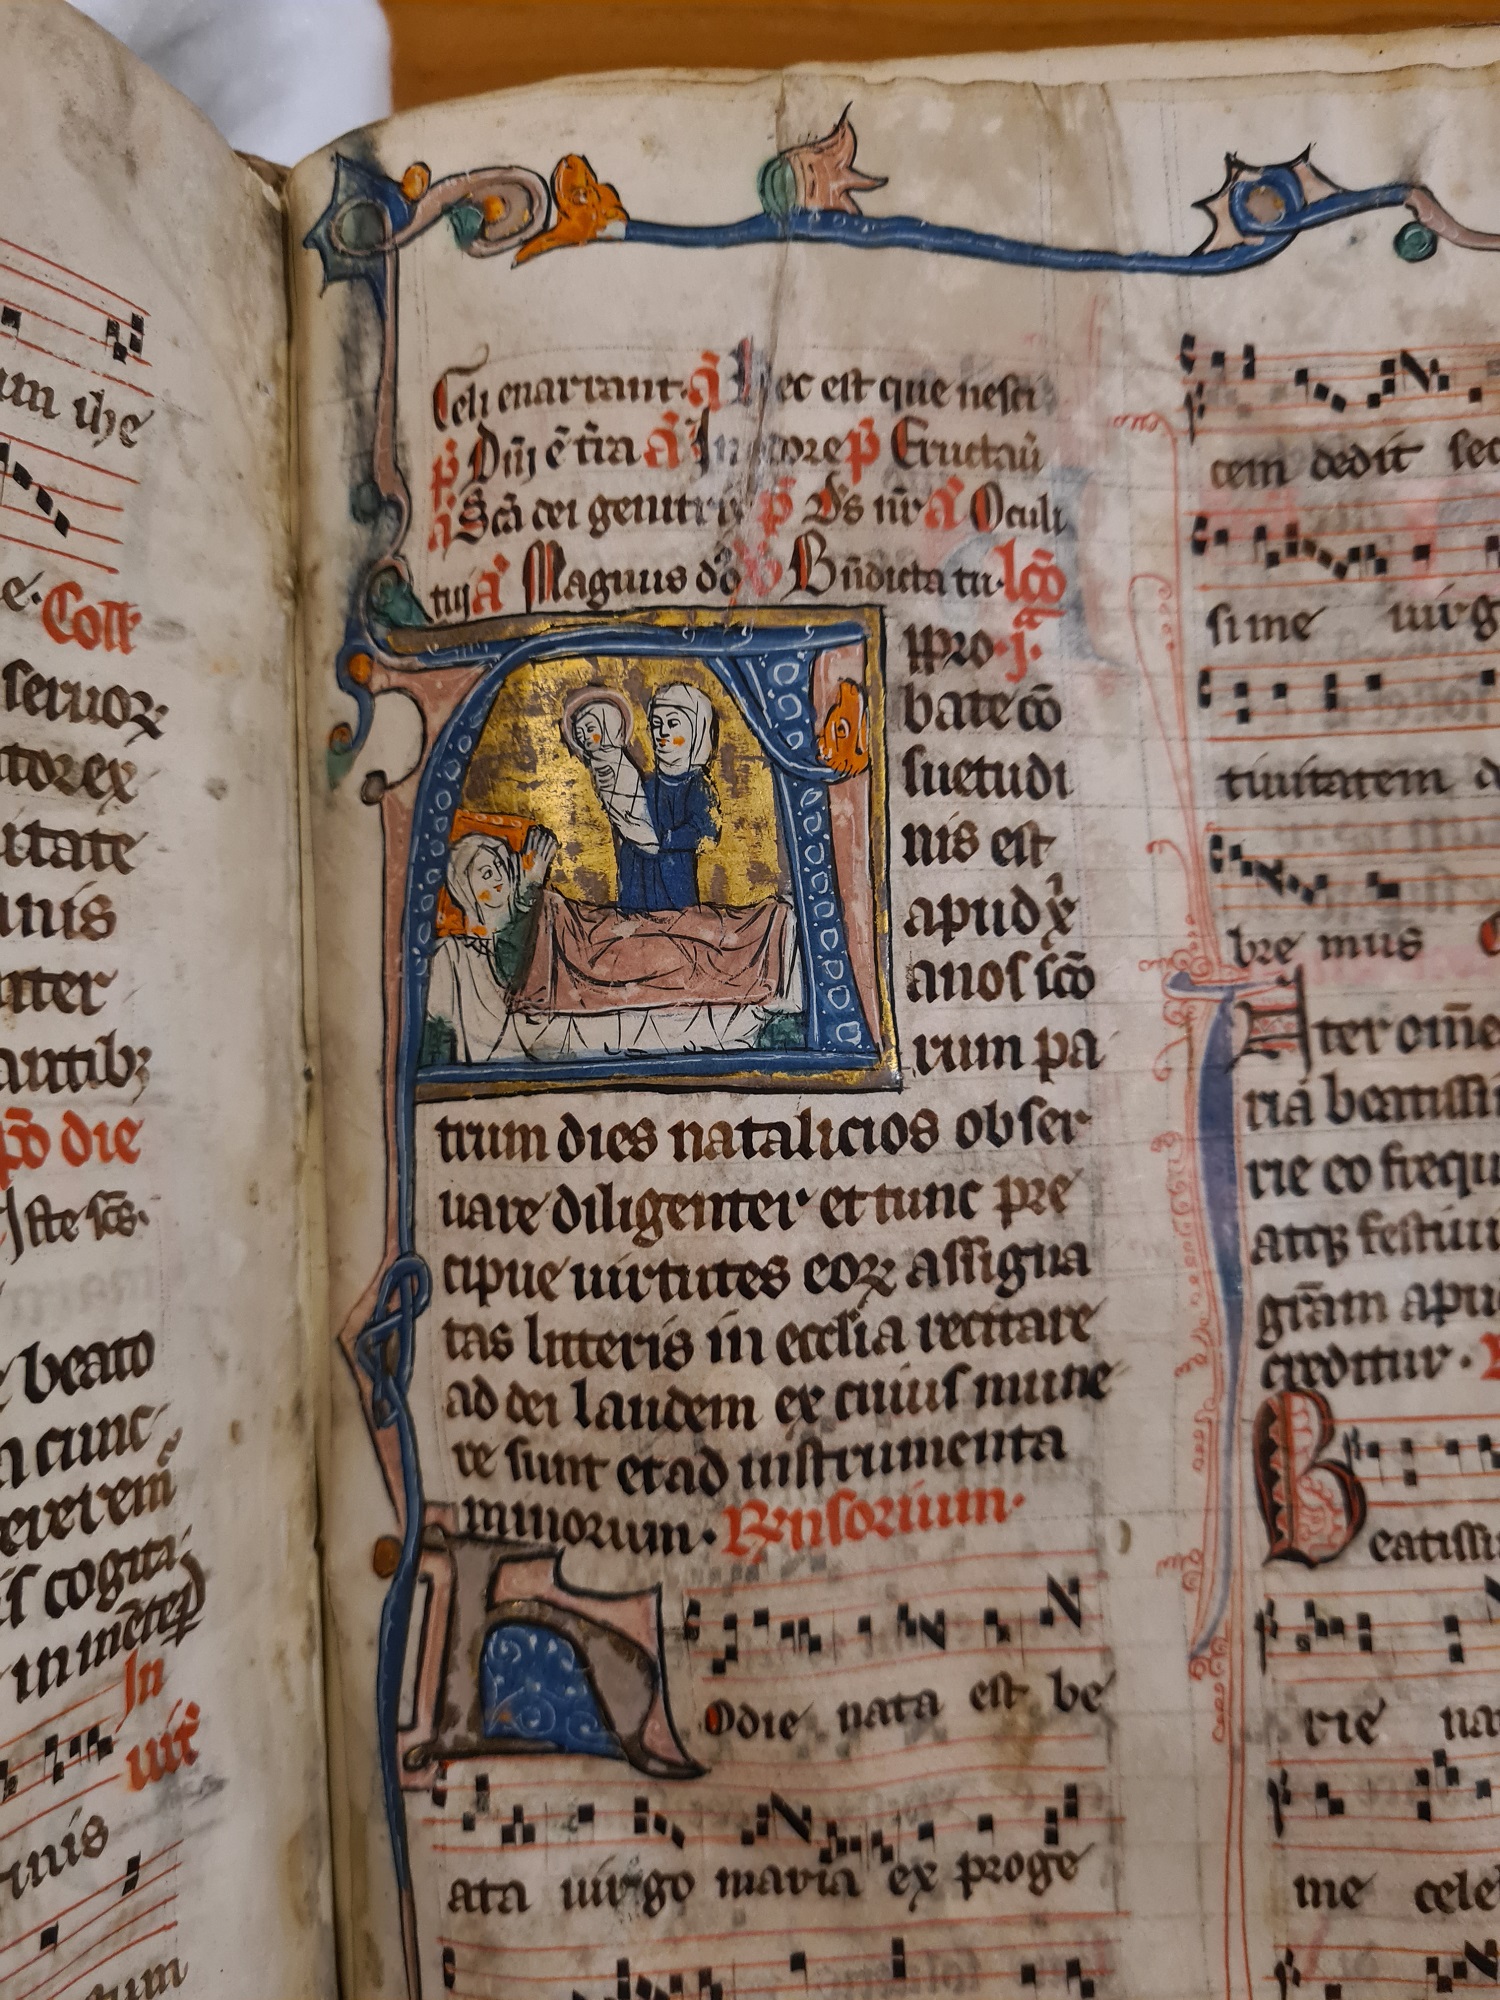 um ihe
e. Coll̃
seruoꝝ
torex
itate
anis
nter
antibꝫ
põ die
Iste scs̃.
beato
cunc
cogita
In
uit̃
Celi enarrant. ã Hec est que nesci
p̃ Dñi ẽ t̃ra ã In odore p̃ Eructaũ
ã Sc̃a dei genitrix p̃ Ds̃ nr̃ ã Oculi
tui ã Magnus dõ Bñdicta tu. lc̃o
ppro. j.ª
bate cõ
suetudi
nis est
apud xp̃i
anos sc̃o
rum pa
trum dies natalicios obser
uare diligenter et tunc pre
cipue uirtutes eoꝝ assigna
tas litteris in ecc̃lia recitare
ad dei laudem ex cuius mune
re sunt et ad instrumenta
minorum. Rensorium.
Hodie nata est be
ata uirgo maria ex proge
cem dedit sec
sime uirg
tiuitatem d
bre mus
Ater om̃e
ria beatissi
rie eo frequ
atqꝫ festiui
gr̃am apu
creditur.
Beatissi
rie na
me cele